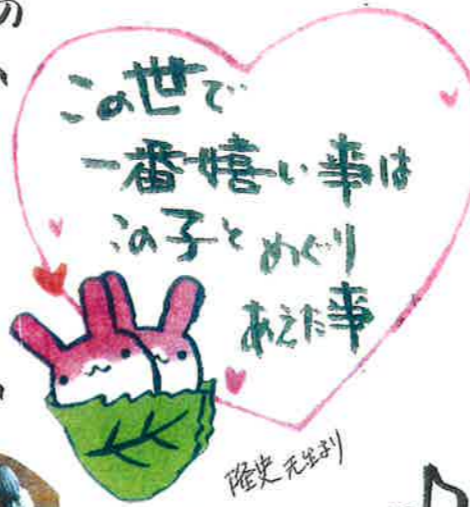 の
この世で
一番嬉い事は
この子とめぐり
あえた事
隆史先生より